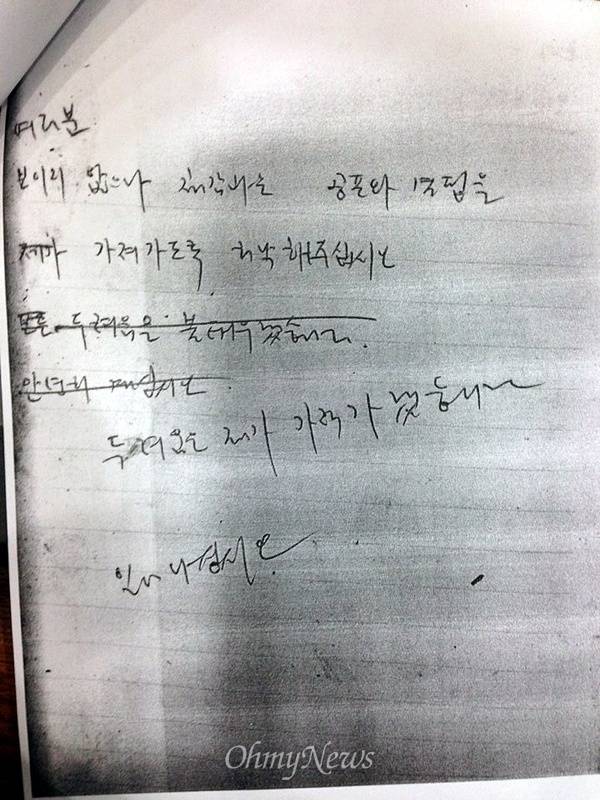 여러분
보이지 않으나 체감하는 공포와 결핍을
제가 가져가도록 허락해주십시오
모든 두려움은 불태우겠습니다.
안녕히 계십시오
두려움은 제가 가져가겠습니다
일어나십시오.
OhmyNews